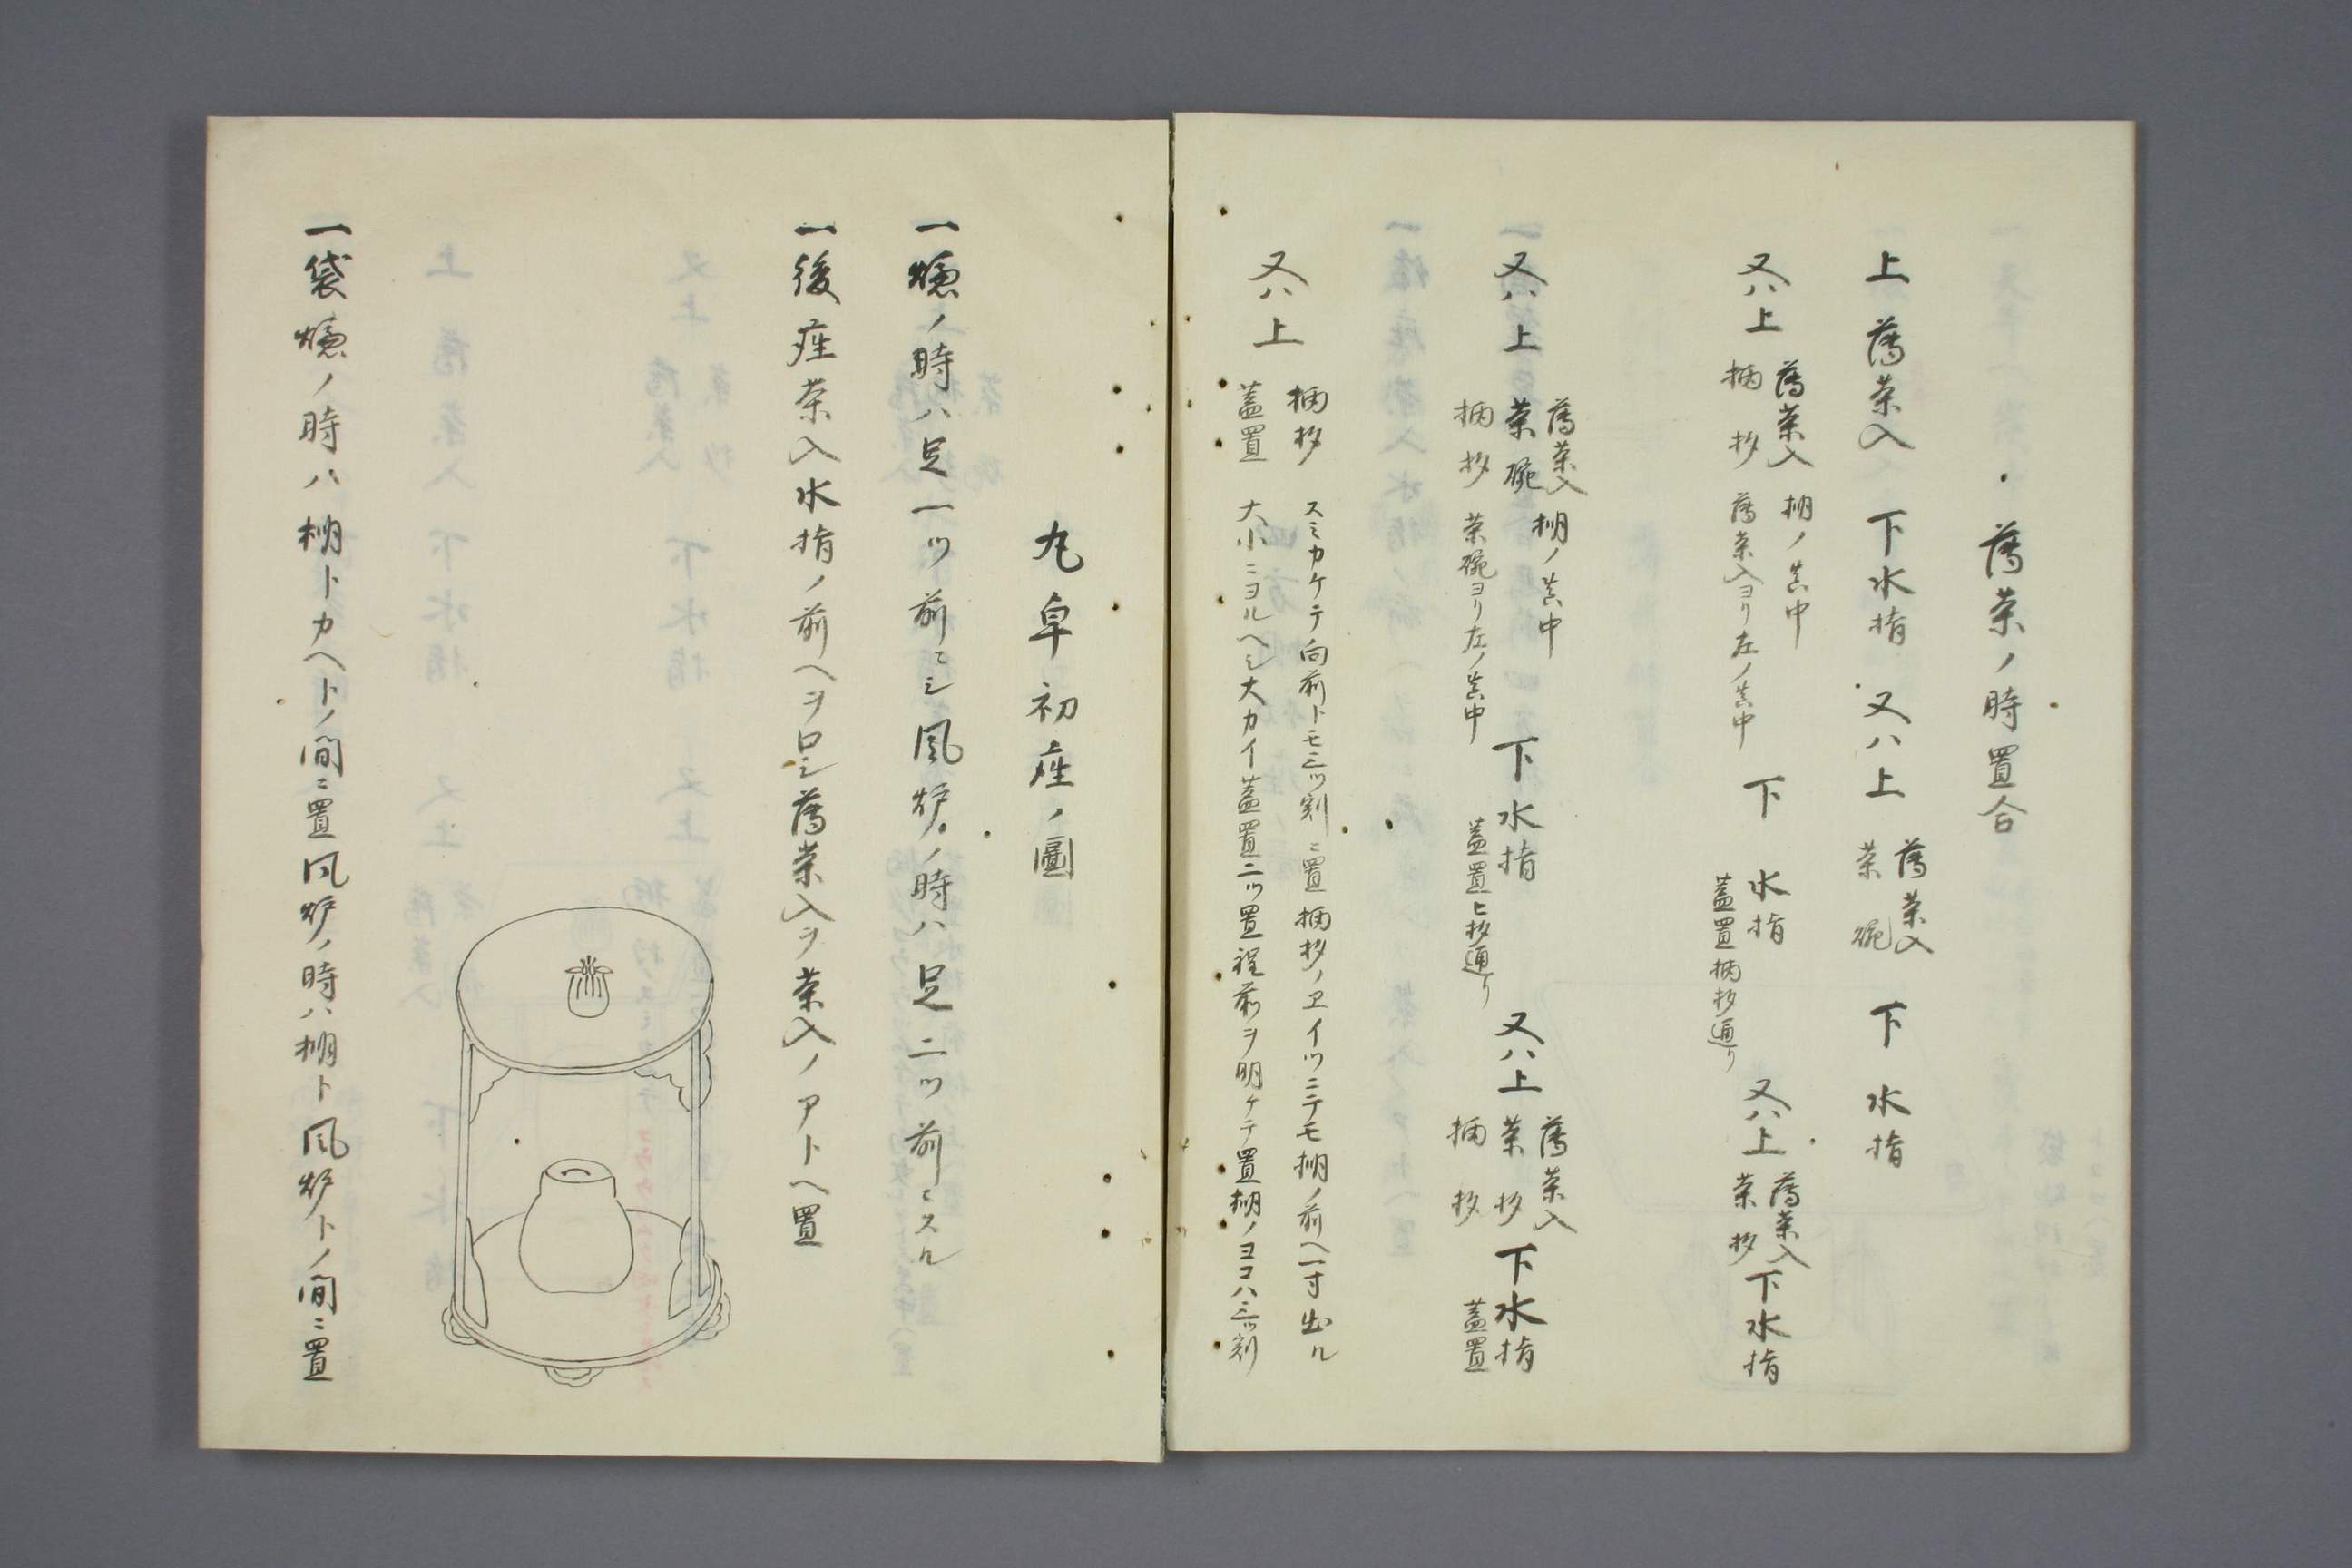 薄茶ノ時置合
上 薄茶入 下 水指 又ハ上 薄茶入 茶碗 下 水指
又ハ上 薄茶入 柄杓 棚ノ真中 薄茶入ヨリ左ノ真中 下 水指 蓋置柄杓通り 又ハ上 薄茶入 茶杓 下 水指
又ハ上 薄茶入 茶碗 柄杓 棚ノ真中 茶碗ヨリ左ノ真中 下 水指 蓋置ヒ杓通り 又ハ上 薄茶入 茶杓 柄杓 下 水指 蓋置
又ハ上 柄杓 蓋置
スミカケテ向前トモ三ツ割ニ置 柄杓ノエイツニテモ棚ノ前ヘ一寸出ル
大小ニヨルヘシ大カイ蓋置二ツ置程前ヲ明ケテ置棚ノヨコハ三ツ割
丸卓初座ノ圖
一爐ノ時ハ足一ツ前ニシ風炉ノ時ハ足二ツ前ニスル
一後座茶入水指ノ前ヘヲロシ薄茶入ヲ茶入ノアトヘ置
一袋爐ノ時ハ棚トカヘトノ間ニ置風炉ノ時ハ棚ト風炉トノ間ニ置